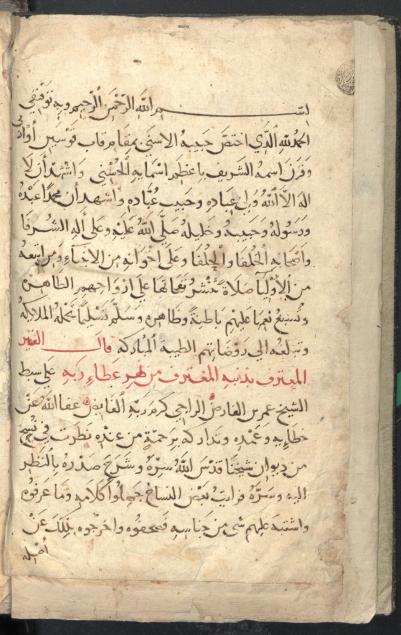 بسم الله الرحمن الرحيم وبه توفيقي
الحمد لله الذي اختص حبيبه الاسنى بمقام قاب قوسين أو أدنى
وقرن اسمه الشريف باعظم اسمايه الحسنى واشهد أن لا
اله الا الله ولي عباده وحبيب عباده واشهد أن محمدا عبده
ورسوله وحبيبه وخليله صلى الله عليه وعلى اله الشرفا
واصحابه الخلفا والحلفا وعلى اخوانه من الانبياء ومن اتبعه
من الأوليا صلاة تنتشر نفحاتها على ارواحهم الطاهره
وتسبغ نعمها عليهم باطنة وظاهره وسلم تسليما تحمله الملايكه
وتبلغه الى روضاتهم الطيبة المباركه قال الفقير
المعترف بذنبه المغترف من نهر عطاء ربه علي سبط
الشيخ عمر بن الفارض الراجي كرم ربه الفايض عفا الله عن
خطايه وعمده وتداركه برحمة من عنده نظرت في نسخ
من ديوان شيخنا قدس الله سره وشرح صدره بالنظر
اليه وسره فرايت بعض النساخ جهلوا كلامه وما عرفوه
واشتبه عليهم شي من جناسه فصحفوه واخرجوه بذلك عن
أصله